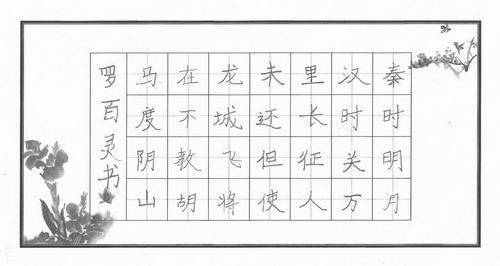 秦时明月
汉时关万
里长征人
未还但使
龙城飞将
在不教胡
马度阴山
罗百灵书